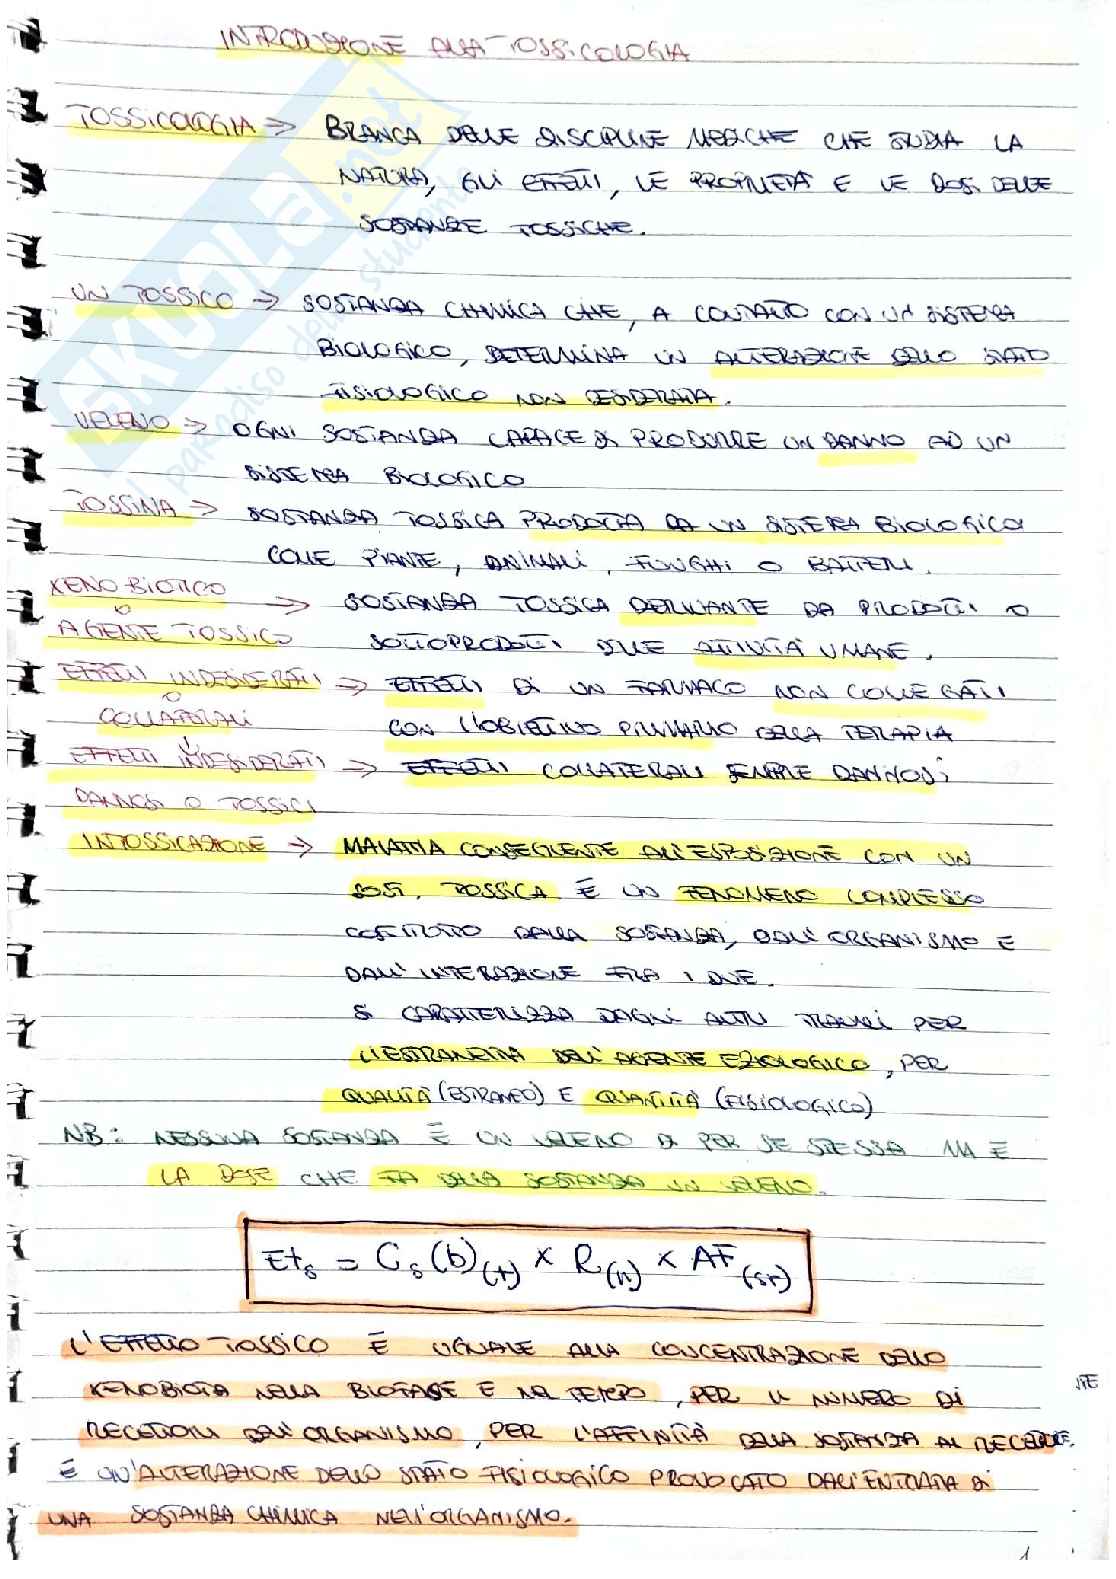 INTRODUZIONE ALLA TOSSICOLOGIA
TOSSICOLOGIA => BRANCA DELLE DISCIPLINE MEDICHE CHE STUDIA LA
NATURA, GLI EFFETTI, LE PROPRIETÀ E LE DOSI DELLE
SOSTANZE TOSSICHE.
UN TOSSICO => SOSTANZA CHIMICA CHE, A CONTATTO CON UN SISTEMA
BIOLOGICO, DETERMINA UN ALTERAZIONE DELLO STATO
FISIOLOGICO NON DESIDERATA.
VELENO => OGNI SOSTANZA CAPACE DI PRODURRE UN DANNO AD UN
SISTEMA BIOLOGICO
TOSSINA => SOSTANZA TOSSICA PRODOTTA DA UN SISTEMA BIOLOGICO
COME PIANTE, ANIMALI, FUNGHI O BATTERI.
XENOBIOTICO => SOSTANZA TOSSICA DERIVANTE DA PRODOTTI O
O
AGENTE TOSSICO SOTTOPRODOTTI DELLE ATTIVITÀ UMANE.
EFFETTI INDESIDERATI => EFFETTI DI UN FARMACO NON COLLEGATI
O
COLLATERALI CON L'OBIETTIVO PRIMARIO DELLA TERAPIA
EFFETTI INDESIDERATI => EFFETTI COLLATERALI SEMPRE DANNOSI
DANNOSI O TOSSICI
INTOSSICAZIONE => MALATTIA CONSEGUENTE ALL'ESPOSIZIONE CON UN
SOST. TOSSICA È UN FENOMENO COMPLESSO
COSTITUITO DALLA SOSTANZA, DALL'ORGANISMO E
DALL'INTERAZIONE FRA I DUE.
SI CARATTERIZZA DAGLI ALTRI TRAUMI PER
L'ESTRANEITÀ DELL'AGENTE EZIOLOGICO, PER
QUALITÀ (ESTRANEO) E QUANTITÀ (FISIOLOGICO)
NB: NESSUNA SOSTANZA È UN VELENO DI PER SE STESSA MA È
LA DOSE CHE FA DELLA SOSTANZA UN VELENO.
Ets = Cs(b)(t) x R(n) x AF(sr)
L'EFFETTO TOSSICO È UGUALE ALLA CONCENTRAZIONE DELLO
XENOBIOTA NELLA BIOFASE E NEL TEMPO, PER IL NUMERO DI
RECETTORI DELL'ORGANISMO, PER L'AFFINITÀ DELLA SOSTANZA AL RECETTORE.
È UN'ALTERAZIONE DELLO STATO FISIOLOGICO PROVOCATO DALL'ENTRATA DI
UNA SOSTANZA CHIMICA NELL'ORGANISMO.
1
SKUOLA.net
il paradiso dello studente